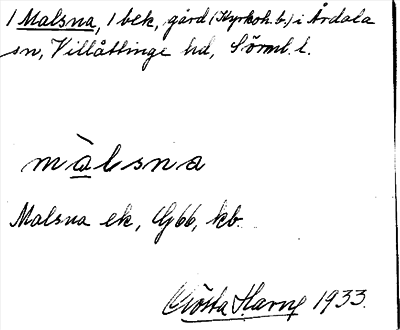 1 Malsna, 1 bek, gård (Kyrkoh. b.) i Årdala
sn, Villåttinge hd, Sörml. l.
màlsna
Malsna ek, G66, kb.
Gösta Harng 1933.